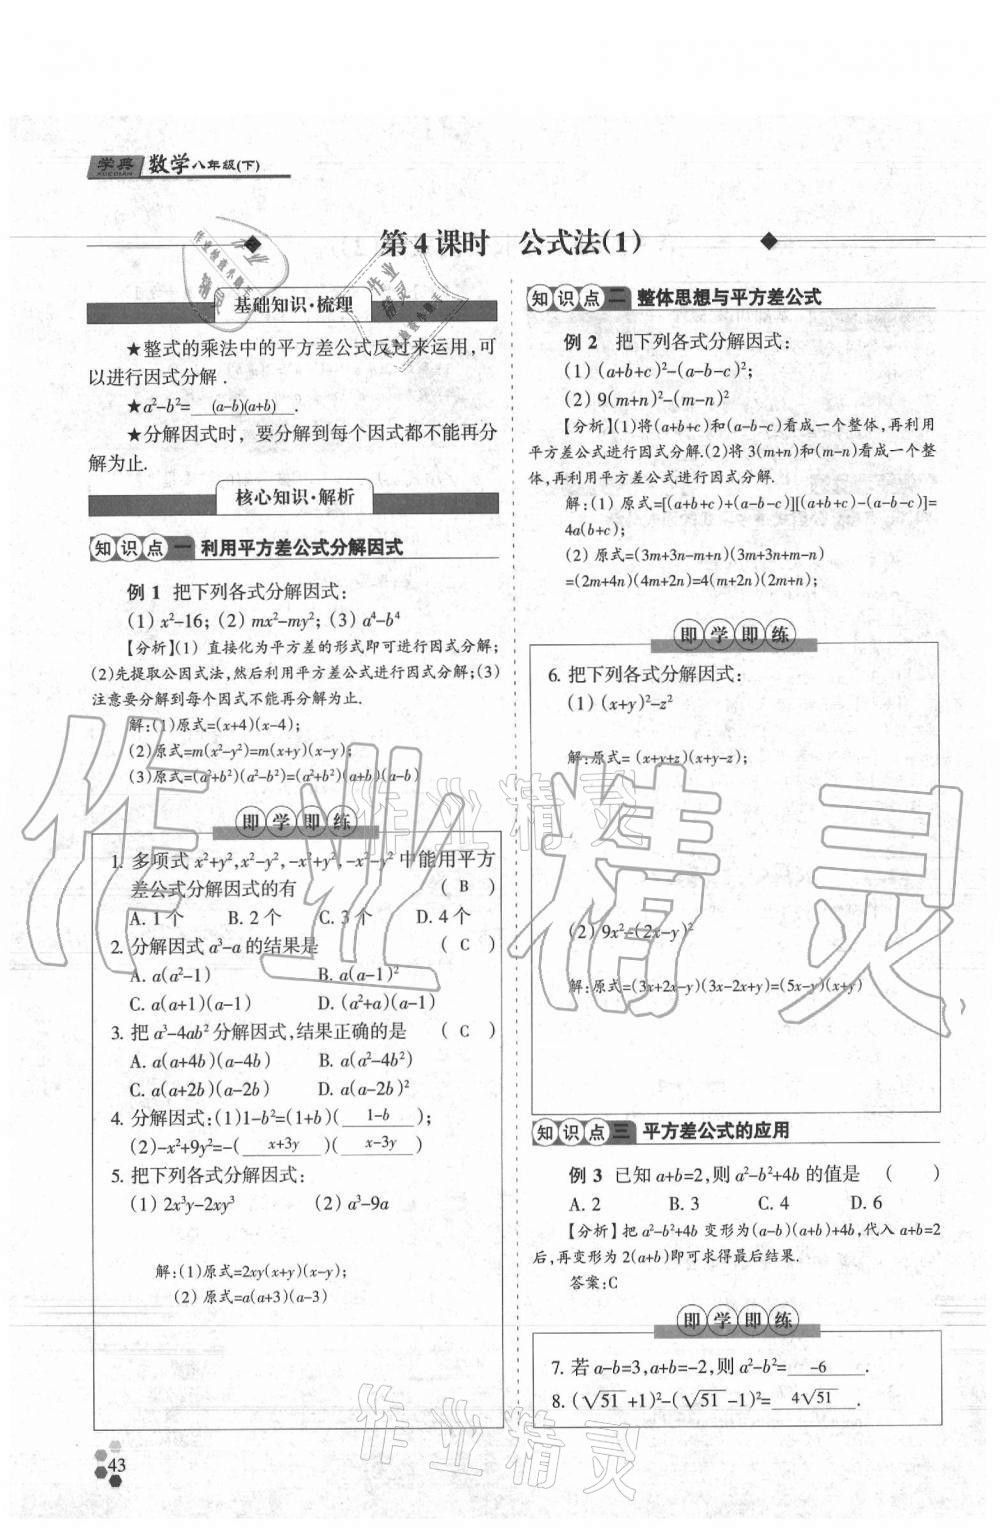 学典 数学八年级(下)
XUEDIAN
第4课时 公式法(1)
基础知识·梳理
★整式的乘法中的平方差公式反过来运用,可
以进行因式分解.
★a²-b²= (a-b)(a+b) .
★分解因式时,要分解到每个因式都不能再分
解为止.
核心知识·解析
知识点一 利用平方差公式分解因式
例1 把下列各式分解因式:
(1) x²-16; (2) mx²-my²; (3) a⁴-b⁴
【分析】(1) 直接化为平方差的形式即可进行因式分解;
(2)先提取公因式法,然后利用平方差公式进行因式分解;(3)
注意要分解到每个因式不能再分解为止.
解:(1)原式=(x+4)(x-4);
(2)原式=m(x²-y²)=m(x+y)(x-y);
(3)原式=(a²+b²)(a²-b²)=(a²+b²)(a+b)(a-b)
即学即练
1. 多项式 x²+y²,x²-y²,-x²+y²,-x²-y² 中能用平方
差公式分解因式的有 ( B )
A. 1个 B. 2个 C. 3个 D. 4个
2. 分解因式 a³-a 的结果是 ( C )
A. a(a²-1) B. a(a-1)²
C. a(a+1)(a-1) D. (a²+a)(a-1)
3. 把 a³-4ab² 分解因式,结果正确的是 ( C )
A. a(a+4b)(a-4b) B. a(a²-4b²)
C. a(a+2b)(a-2b) D. a(a-2b)²
4. 分解因式:(1)1-b²=(1+b)( 1-b );
(2)-x²+9y²=-( x+3y )( x-3y )
5. 把下列各式分解因式:
(1) 2x³y-2xy³ (2) a³-9a
解:(1)原式=2xy(x+y)(x-y);
(2) 原式=a(a+3)(a-3)
43
知识点二 整体思想与平方差公式
例2 把下列各式分解因式:
(1) (a+b+c)²-(a-b-c)²;
(2) 9(m+n)²-(m-n)²
【分析】(1)将(a+b+c)和(a-b-c)看成一个整体,再利用
平方差公式进行因式分解.(2)将 3(m+n)和(m-n)看成一个整
体,再利用平方差公式进行因式分解.
解:(1) 原式=[(a+b+c)+(a-b-c)][(a+b+c)-(a-b-c)]=
4a(b+c);
(2) 原式=(3m+3n-m+n)(3m+3n+m-n)
=(2m+4n)(4m+2n)=4(m+2n)(2m+n);
即学即练
6. 把下列各式分解因式:
(1) (x+y)²-z²
解:原式= (x+y+z)(x+y-z);
(2) 9x²-(2x-y)²
解:原式=(3x+2x-y)(3x-2x+y)=(5x-y)(x+y)
知识点三 平方差公式的应用
例3 已知 a+b=2,则 a²-b²+4b 的值是 ( )
A. 2 B. 3 C. 4 D. 6
【分析】把 a²-b²+4b 变形为(a-b)(a+b)+4b,代入 a+b=2
后,再变形为 2(a+b)即可求得最后结果.
答案:C
即学即练
7. 若 a-b=3,a+b=-2,则 a²-b²= -6 .
8. (√51+1)²-(√51-1)²= 4√51 .
作业精灵
作业精灵
作业精灵